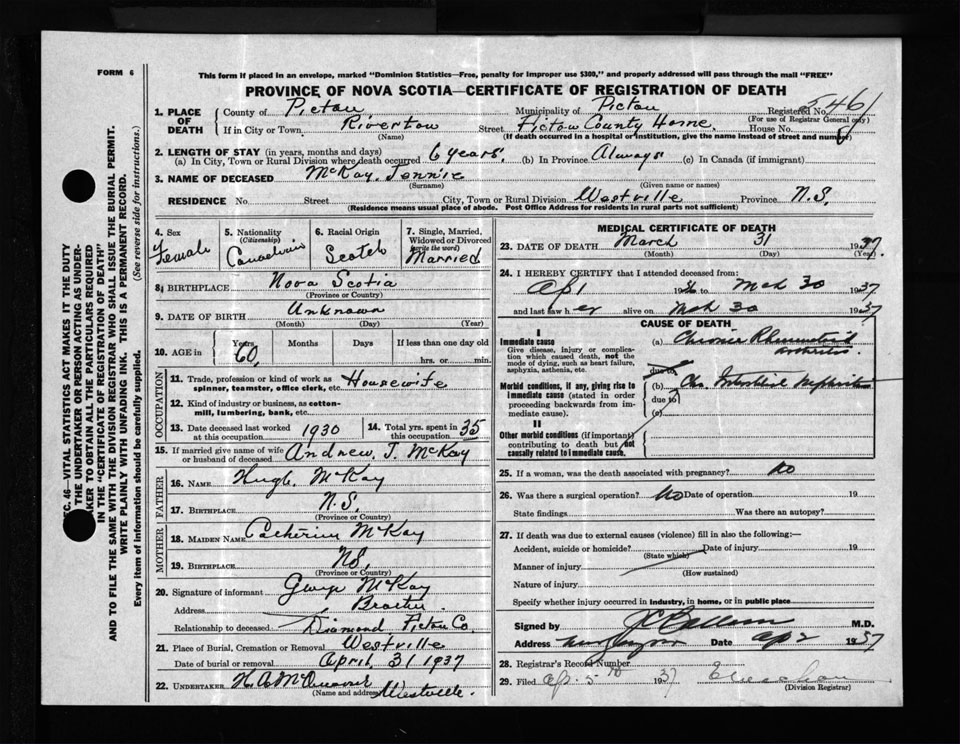 FORM 6
This form if placed in an envelope, marked "Dominion Statistics—Free, penalty for improper use $300," and properly addressed will pass through the mail "FREE"
PROVINCE OF NOVA SCOTIA—CERTIFICATE OF REGISTRATION OF DEATH
1. PLACE OF DEATH County of Pictou Municipality of Pictou Registered No. 546
(For use of Registrar General only)
If in City or Town Riverton Street Pictou County Home House No.
(Name) (If death occurred in a hospital or institution, give the name instead of street and number)
2. LENGTH OF STAY (in years, months and days)
(a) In City, Town or Rural Division where death occurred 6 years. (b) In Province Always (c) In Canada (if immigrant)
3. NAME OF DECEASED McKay, Jennie
(Surname) (Given name or names)
RESIDENCE No. Street City, Town or Rural Division Westville Province N.S.
(Residence means usual place of abode. Post Office Address for residents in rural parts not sufficient)
4. Sex Female
5. Nationality (Citizenship) Canadian
6. Racial Origin Scotch
7. Single, Married, Widowed or Divorced (write the word) Married
8. BIRTHPLACE Nova Scotia
(Province or Country)
9. DATE OF BIRTH Unknown
(Month) (Day) (Year)
10. AGE in Years 60 Months Days If less than one day old
hrs. or min.
OCCUPATION
11. Trade, profession or kind of work as spinner, teamster, office clerk, etc. Housewife
12. Kind of industry or business, as cotton-mill, lumbering, bank, etc.
13. Date deceased last worked at this occupation 1930 14. Total yrs. spent in this occupation 35
15. If married give name of wife or husband of deceased Andrew J. McKay
FATHER
16. NAME Hugh McKay
17. BIRTHPLACE N.S.
(Province or Country)
MOTHER
18. MAIDEN NAME Catherine McKay
19. BIRTHPLACE N.S.
(Province or Country)
20. Signature of informant George McKay
Address
Relationship to deceased Brother
Diamond Pictou Co.
21. Place of Burial, Cremation or Removal Westville
Date of burial or removal April, 31 1937
22. UNDERTAKER H.A.
(Name and address) Westville.
MEDICAL CERTIFICATE OF DEATH
23. DATE OF DEATH March 31 1937.
(Month) (Day) (Year)
24. I HEREBY CERTIFY that I attended deceased from:
Apl 1936 to Mch 30 1937
and last saw her alive on Mch 30 1937
CAUSE OF DEATH
I
Immediate cause
Give disease, injury or complication which caused death, not the mode of dying, such as heart failure, asphyxia, asthenia, etc.
(a) Chronic Rheumatoid arthritis
due to
Morbid conditions, if any, giving rise to immediate cause (stated in order proceeding backwards from immediate cause).
(b) Chr. Interstitial Nephritis
due to
(c)
II
Other morbid conditions (if important) contributing to death but not causally related to immediate cause.
25. If a woman, was the death associated with pregnancy? No
26. Was there a surgical operation? No Date of operation 19
State findings Was there an autopsy?
27. If death was due to external causes (violence) fill in also the following:—
Accident, suicide or homicide? Date of injury 19
(State which)
Manner of injury
(How sustained)
Nature of injury
Specify whether injury occurred in industry, in home, or in public place
Signed by M.D.
Address New Glasgow Date Ap 2 1937
28. Registrar's Record Number
29. Filed Ap. 5th 1937
(Division Registrar)
SEC. 46—VITAL STATISTICS ACT MAKES IT THE DUTY
OF THE UNDERTAKER OR PERSON ACTING AS UNDER-
TAKER TO OBTAIN ALL THE PARTICULARS REQUIRED
IN THE "CERTIFICATE OF REGISTRATION OF DEATH"
AND TO FILE THE SAME WITH THE DIVISION REGISTRAR WHO SHALL ISSUE THE BURIAL PERMIT.
WRITE PLAINLY WITH UNFADING INK. THIS IS A PERMANENT RECORD.
Every item of information should be carefully supplied. (See reverse side for instructions.)